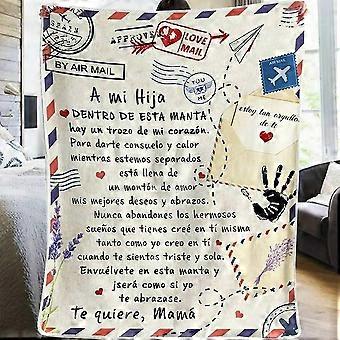 SPAIN
APPROVED
LOVE
MAIL
BY AIR MAIL
AIR MAIL
YOU
ME
A mi Hija
DENTRO DE ESTA MANTA!
hay un trozo de mi corazón.
Para darte consuelo y calor
mientras estemos separados
está llena de
un montón de amor
mis mejores deseos y abrazos.
Nunca abandones los hermosos
sueños que tienes creé en tí misma
tanto como yo creo en tí
cuando te sientas triste y sola.
Envuélvete en esta manta y
¡será como si yo
te abrazase.
Te quiere, Mamá
estoy tan orgullosa
de ti